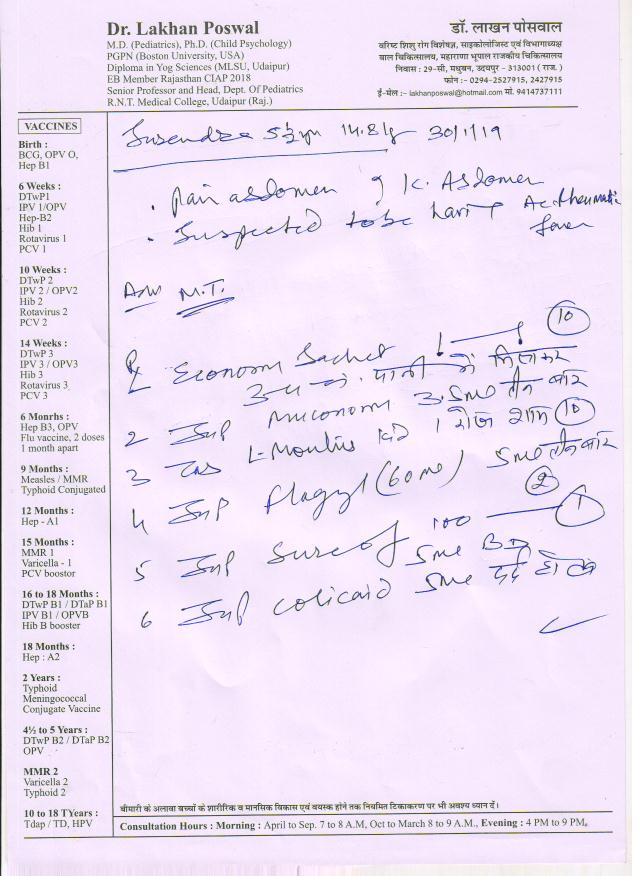 Dr. Lakhan Poswal
M.D. (Pediatrics), Ph.D. (Child Psychology)
PGPN (Boston University, USA)
Diploma in Yog Sciences (MLSU, Udaipur)
EB Member Rajasthan CIAP 2018
Senior Professor and Head, Dept. Of Pediatrics
R.N.T. Medical College, Udaipur (Raj.)
डॉ. लाखन पोसवाल
वरिष्ट शिशु रोग विशेषज्ञ, साइकोलोजिस्ट एवं विभागाध्यक्ष
बाल चिकित्सालय, महाराणा भूपाल राजकीय चिकित्सालय
निवास : 29-सी, मधुबन, उदयपुर - 313001 ( राज. )
फोन :- 0294-2527915, 2427915
ई-मेल :- lakhanposwal@hotmail.com मो. 9414737111
VACCINES
Birth :
BCG, OPV O,
Hep B1
6 Weeks :
DTwP1
IPV 1/OPV
Hep-B2
Hib 1
Rotavirus 1
PCV 1
10 Weeks :
DTwP 2
IPV 2 / OPV2
Hib 2
Rotavirus 2
PCV 2
14 Weeks :
DTwP 3
IPV 3 / OPV3
Hib 3
Rotavirus 3
PCV 3
6 Monrhs :
Hep B3, OPV
Flu vaccine, 2 doses
1 month apart
9 Months :
Measles / MMR
Typhoid Conjugated
12 Months :
Hep - A1
15 Months :
MMR 1
Varicella - 1
PCV boostor
16 to 18 Months :
DTwP B1 / DTaP B1
IPV B1 / OPVB
Hib B booster
18 Months :
Hep : A2
2 Years :
Typhoid
Meningococcal
Conjugate Vaccine
4½ to 5 Years :
DTwP B2 / DTaP B2
OPV
MMR 2
Varicella 2
Typhoid 2
10 to 18 TYears :
Tdap / TD, HPV
Surendra 5½ yr 14.8 kg 30/1/19
. Pain abdomen
. Suspected to be having Ac Rheumatic
fever
Adv M.T.
Rx Econorm Sachet 10
पानी में मिलाकर
2 Syp Muconorm 5ml तीन बार
3 Tab L-Montus Kid 1 रोज शाम 10
4 Syp Flagyl (60 ml) 5ml तीन बार
2
5 Syp Surecef 100 1
5ml BD
6 Syp Colicaid 5ml दर्द हो तब
बीमारी के अलावा बच्चों के शारीरिक व मानसिक विकास एवं वयस्क होने तक नियमित टिकाकरण पर भी अवश्य ध्यान दें।
Consultation Hours : Morning : April to Sep. 7 to 8 A.M, Oct to March 8 to 9 A.M., Evening : 4 PM to 9 PM.